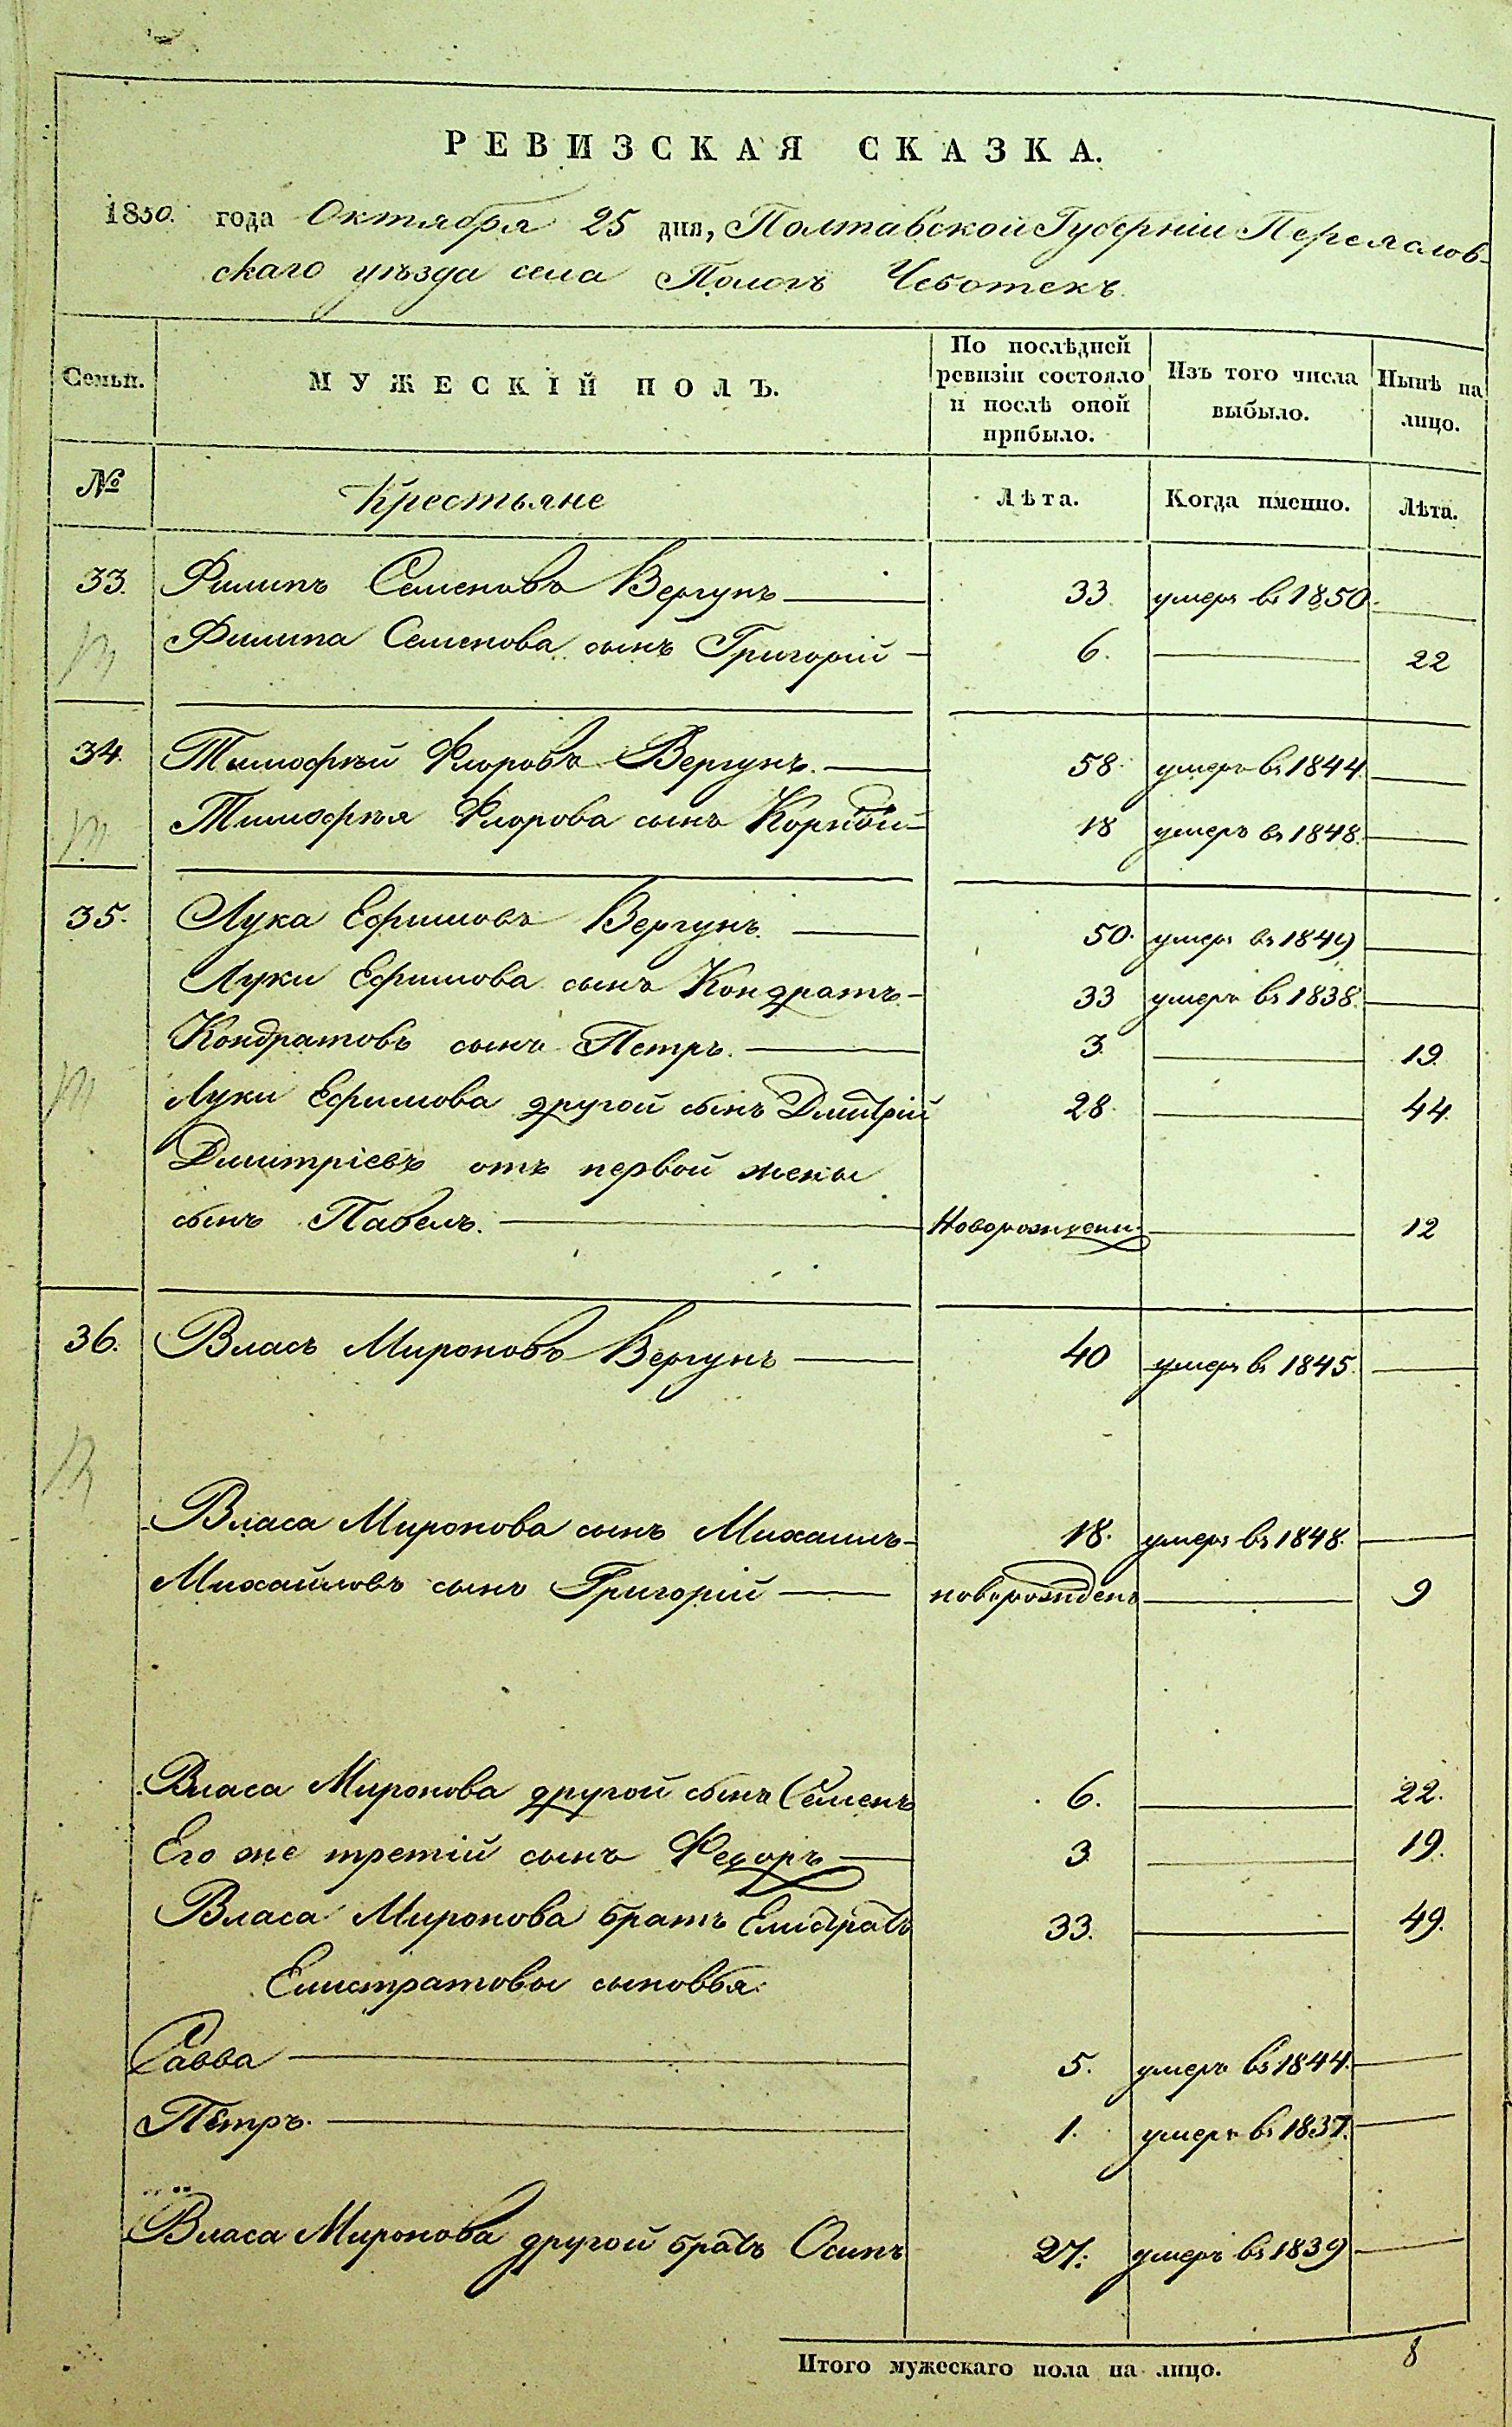 РЕВИЗСКАЯ СКАЗКА.
1850. года Октября 25 дня, Полтавской Губернiи Переяслов-
скаго уѣзда села Пологъ Чеботекъ.
Семьи. МУЖЕСКIЙ ПОЛЪ. По послѣдней ревизiи состояло и послѣ оной прибыло. Изъ того числа выбыло. Нынѣ на лицо.
№ Крестьяне Лѣта. Когда именно. Лѣта.
33. Филипъ Семеновъ Вергунъ 33. умеръ въ 1850.
Филипа Семенова сынъ Григорiй 6. 22
34. Тимофѣй Флоровъ Вергунъ. 58. умеръ въ 1844.
Тимофѣя Флорова сынъ Корнѣй 18 умеръ въ 1848.
35. Лука Ефимовъ Вергунъ. 50. умеръ въ 1849
Луки Ефимова сынъ Кондратъ 33 умеръ въ 1838.
Кондратовъ сынъ Петръ. 3. 19.
Луки Ефимова другой сынъ Дмитрiй 28. 44.
Дмитрiевъ отъ первой жены
сынъ Павелъ. Новорожденн. 12
36. Власъ Мироновъ Вергунъ 40 умеръ въ 1845.
Власа Миронова сынъ Михаилъ 18. умеръ въ 1848.
Михайловъ сынъ Григорiй новорожденъ 9
Власа Миронова другой сынъ Семенъ 6. 22.
Его же третiй сынъ Федоръ 3 19.
Власа Миронова братъ Елистратъ 33. 49.
Елистратовы сыновья:
Савва 5. умеръ въ 1844.
Петръ. 1. умеръ въ 1837.
Власа Миронова другой братъ Осипъ 27. умеръ въ 1839
Итого мужескаго пола на лицо. 8